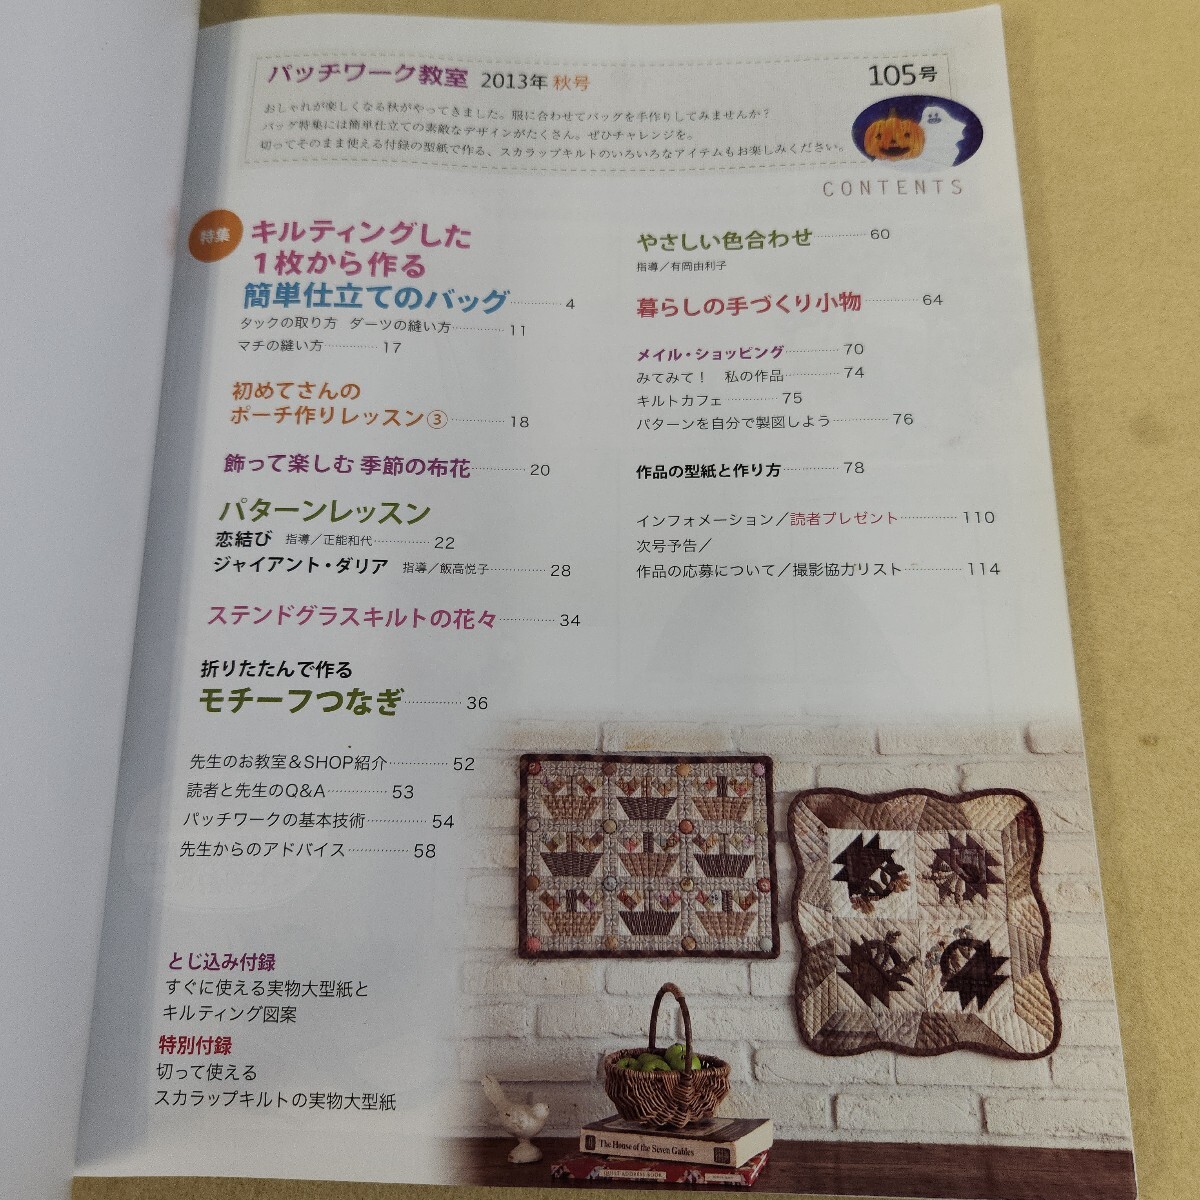 パッチワーク教室 2013年 秋号 105号
おしゃれが楽しくなる秋がやってきました。服に合わせてバッグを手作りしてみませんか?
バッグ特集には簡単仕立ての素敵なデザインがたくさん。ぜひチャレンジを。
切ってそのまま使える付録の型紙で作る、スカラップキルトのいろいろなアイテムもお楽しみください。
CONTENTS
特集
キルティングした
1枚から作る
簡単仕立てのバッグ 4
タックの取り方 ダーツの縫い方 11
マチの縫い方 17
初めてさんの
ポーチ作りレッスン③ 18
飾って楽しむ 季節の布花 20
パターンレッスン
恋結び 指導/正能和代 22
ジャイアント・ダリア 指導/飯高悦子 28
ステンドグラスキルトの花々 34
折りたたんで作る
モチーフつなぎ 36
先生のお教室&SHOP紹介 52
読者と先生のQ&A 53
パッチワークの基本技術 54
先生からのアドバイス 58
とじ込み付録
すぐに使える実物大型紙と
キルティング図案
特別付録
切って使える
スカラップキルトの実物大型紙
やさしい色合わせ 60
指導/有岡由利子
暮らしの手づくり小物 64
メイル・ショッピング 70
みてみて! 私の作品 74
キルトカフェ 75
パターンを自分で製図しよう 76
作品の型紙と作り方 78
インフォメーション/読者プレゼント 110
次号予告/
作品の応募について/撮影協力リスト 114
The House of the Seven Gables
QUILT ADDRESS BOOK